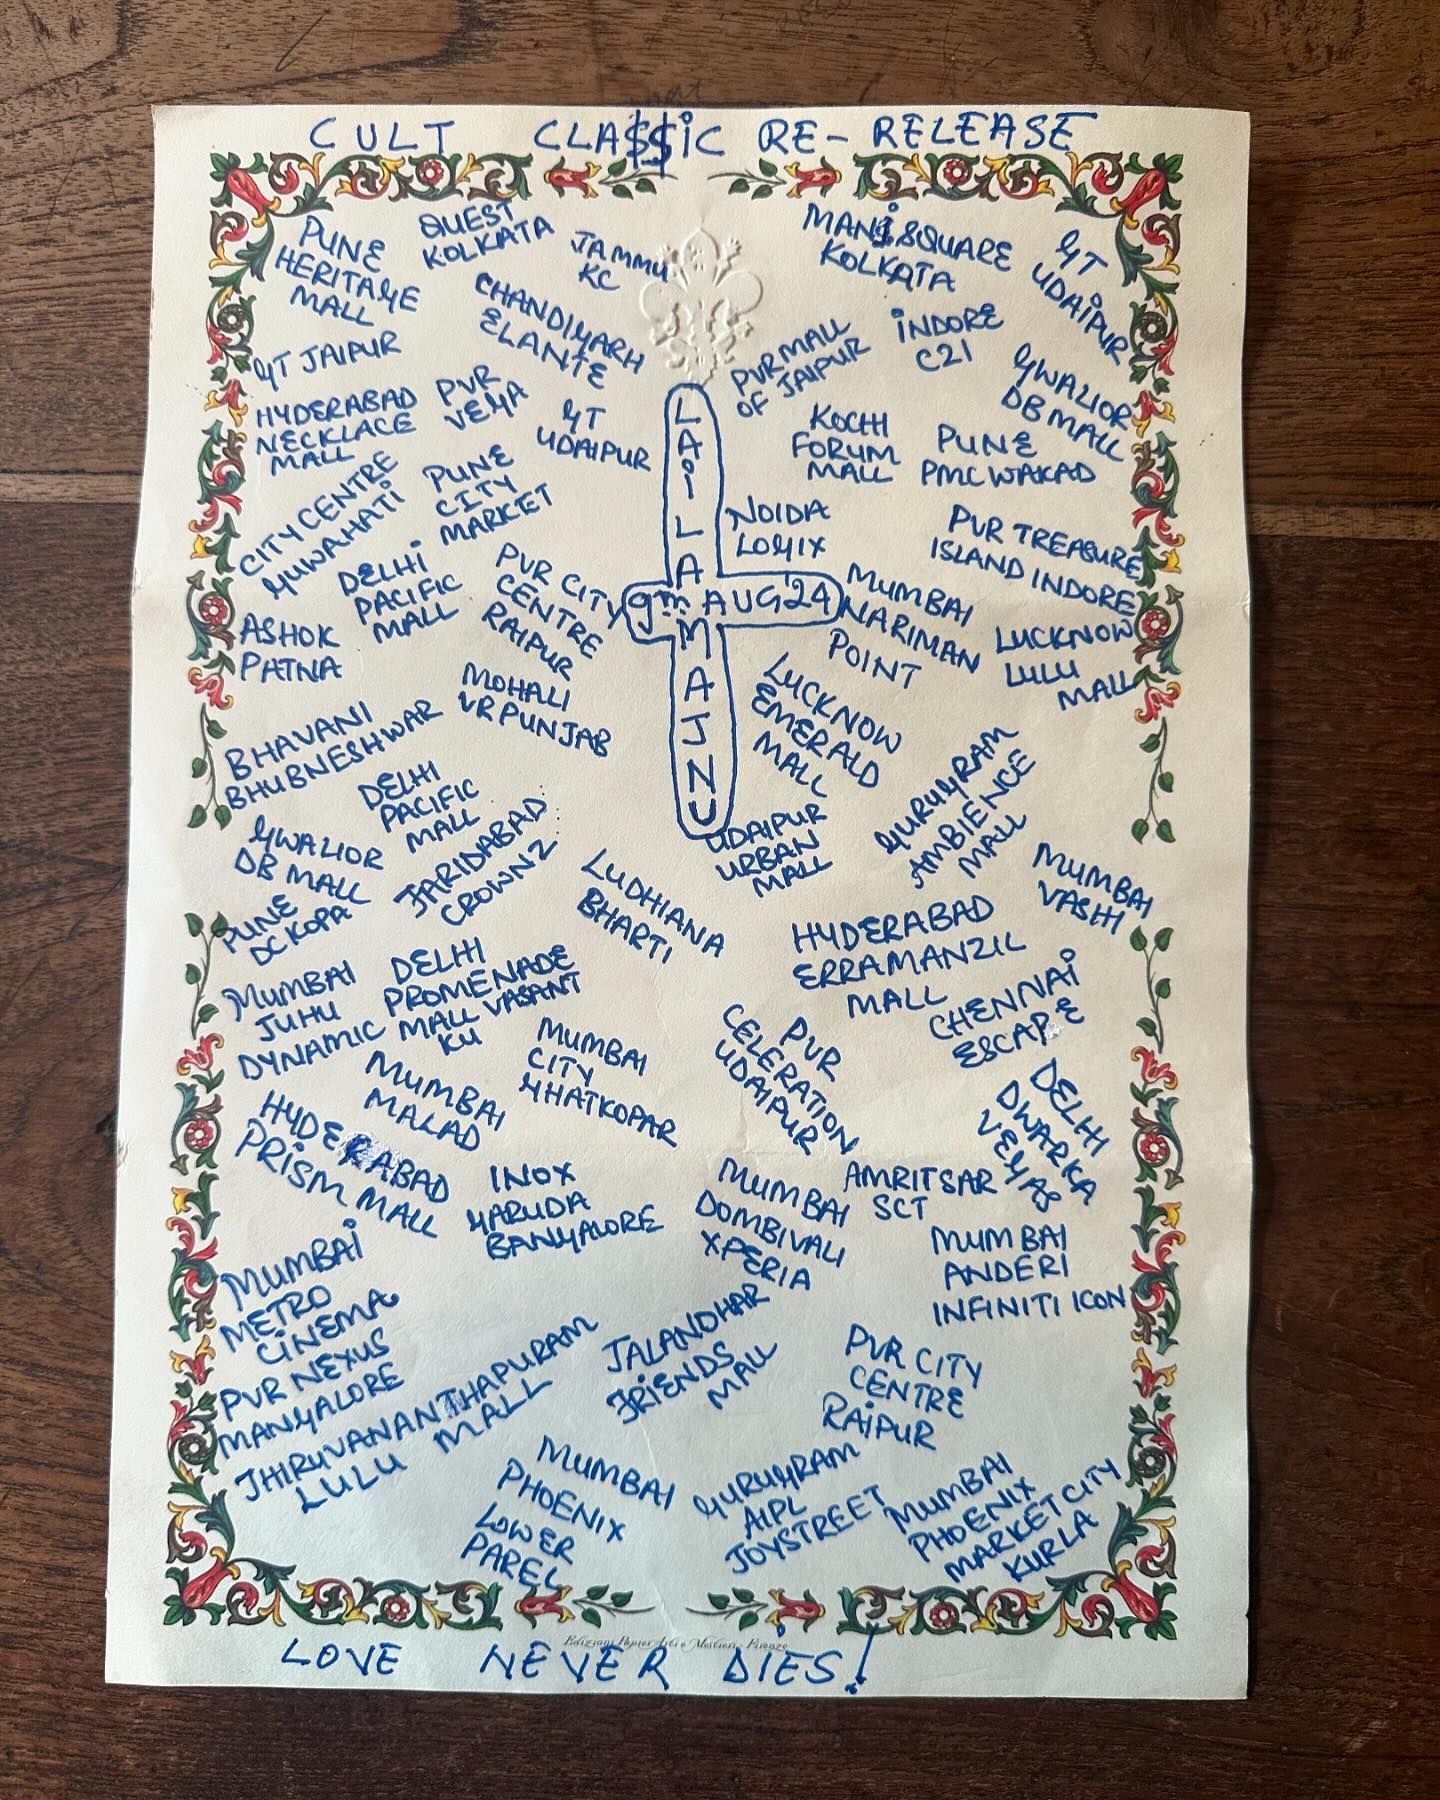 CULT CLA$$iC RE-RELEASE
PUNE
HERITAGE
MALL
QUEST
KOLKATA
JAMMU
KC
MANi SQUARE
KOLKATA
GT
UDAiPUR
GT JAIPUR
CHANDIGARH
ELANTE
PVR MALL
OF JAIPUR
iNDORE
C21
GWALIOR
DB MALL
HYDERABAD
NECKLACE
MALL
PVR
VEGA
GT
UDAIPUR
KOCHI
FORUM
MALL
PUNE
PMC WAKAD
CITY CENTRE
GUWAHATI
PUNE
CITY
MARKET
NOIDA
LOGIX
PVR TREASURE
ISLAND INDORE
DELHI
PACIFIC
MALL
PVR CITY
CENTRE
RAIPUR
LAiLA MAJNU
9TH AUG'24
MUMBAI
NARIMAN
POINT
LUCKNOW
LULU
MALL
ASHOK
PATNA
MOHALI
VR PUNJAB
LUCKNOW
EMERALD
MALL
BHAVANI
BHUBNESHWAR
DELHI
PACIFIC
MALL
GURUGRAM
AMBIENCE
MALL
GWALIOR
DB MALL
FARIDABAD
CROWNZ
UDAIPUR
URBAN
MALL
MUMBAI
VASHI
PUNE
DC KOPA
LUDHIANA
BHARTI
HYDERABAD
ERRAMANZIL
MALL
MUMBAI
JUHU
DYNAMIC
DELHI
PROMENADE
MALL VASANT
KU
CHENNAi
ESCAPE
MUMBAI
MALAD
MUMBAI
CITY
GHATKOPAR
PVR
CELERATION
UDAIPUR
DELHI
DWARKA
VEGAS
HYDERABAD
PRiSM MALL
INOX
GARUDA
BANGALORE
MUMBAI
DOMBIVALI
XPERIA
AMRITSAR
SCT
MUMBAi
METRO
CiNEMA
MUMBAI
ANDERI
INFINITI ICON
PVR NEXUS
MANGALORE
JALANDHAR
FRiENDS
MALL
PVR CITY
CENTRE
RAiPUR
THIRUVANANTHAPURAM
LULU MALL
MUMBAI
PHOENIX
LOWER
PAREL
GURUGRAM
AIPL
JOYSTREET
MUMBAI
PHOENIX
MARKET CITY
KURLA
Edizioni Papier Arti e Mestieri - Firenze
LOVE NEVER DIES!